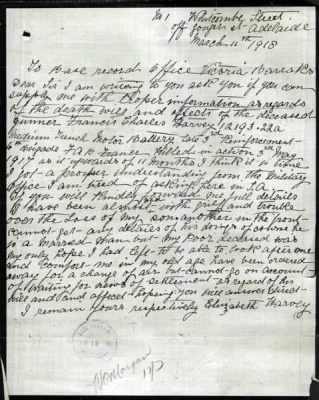 No 1 Whitcombe Street.
off Gouger st Adelaide
March 11th 1918
To Base record Office Victoria Barracks
Dear Sir I am writing to you ask you if you can
supply me with Proper information as regards
of the death will and effects of the deceased
Gunner Francis Charles Harvey
Medium Trench Motor Battery 2nd Reinforcement
Brigade F A B France Killed in action 3rd May
1917 as it upwards of 11 Months I think it is time
I got a proper understanding from the Military
Office I am tired of asking here in S.A.
If you will Kindly forward me full details
I have been almost with grief and trouble
over the Loss of my son another in the front
Cannot get any details of his doings of course he
is a married man but my Poor deceased was
my only hope I had Left to me to Look after me
and comfort me in my old age have been ordered
away for a change of air but cannot go on account
of waiting for news of settlement as regard of his
will and and affects Hoping you will answer direct
I remain Yours respectively Elizabeth Harvey